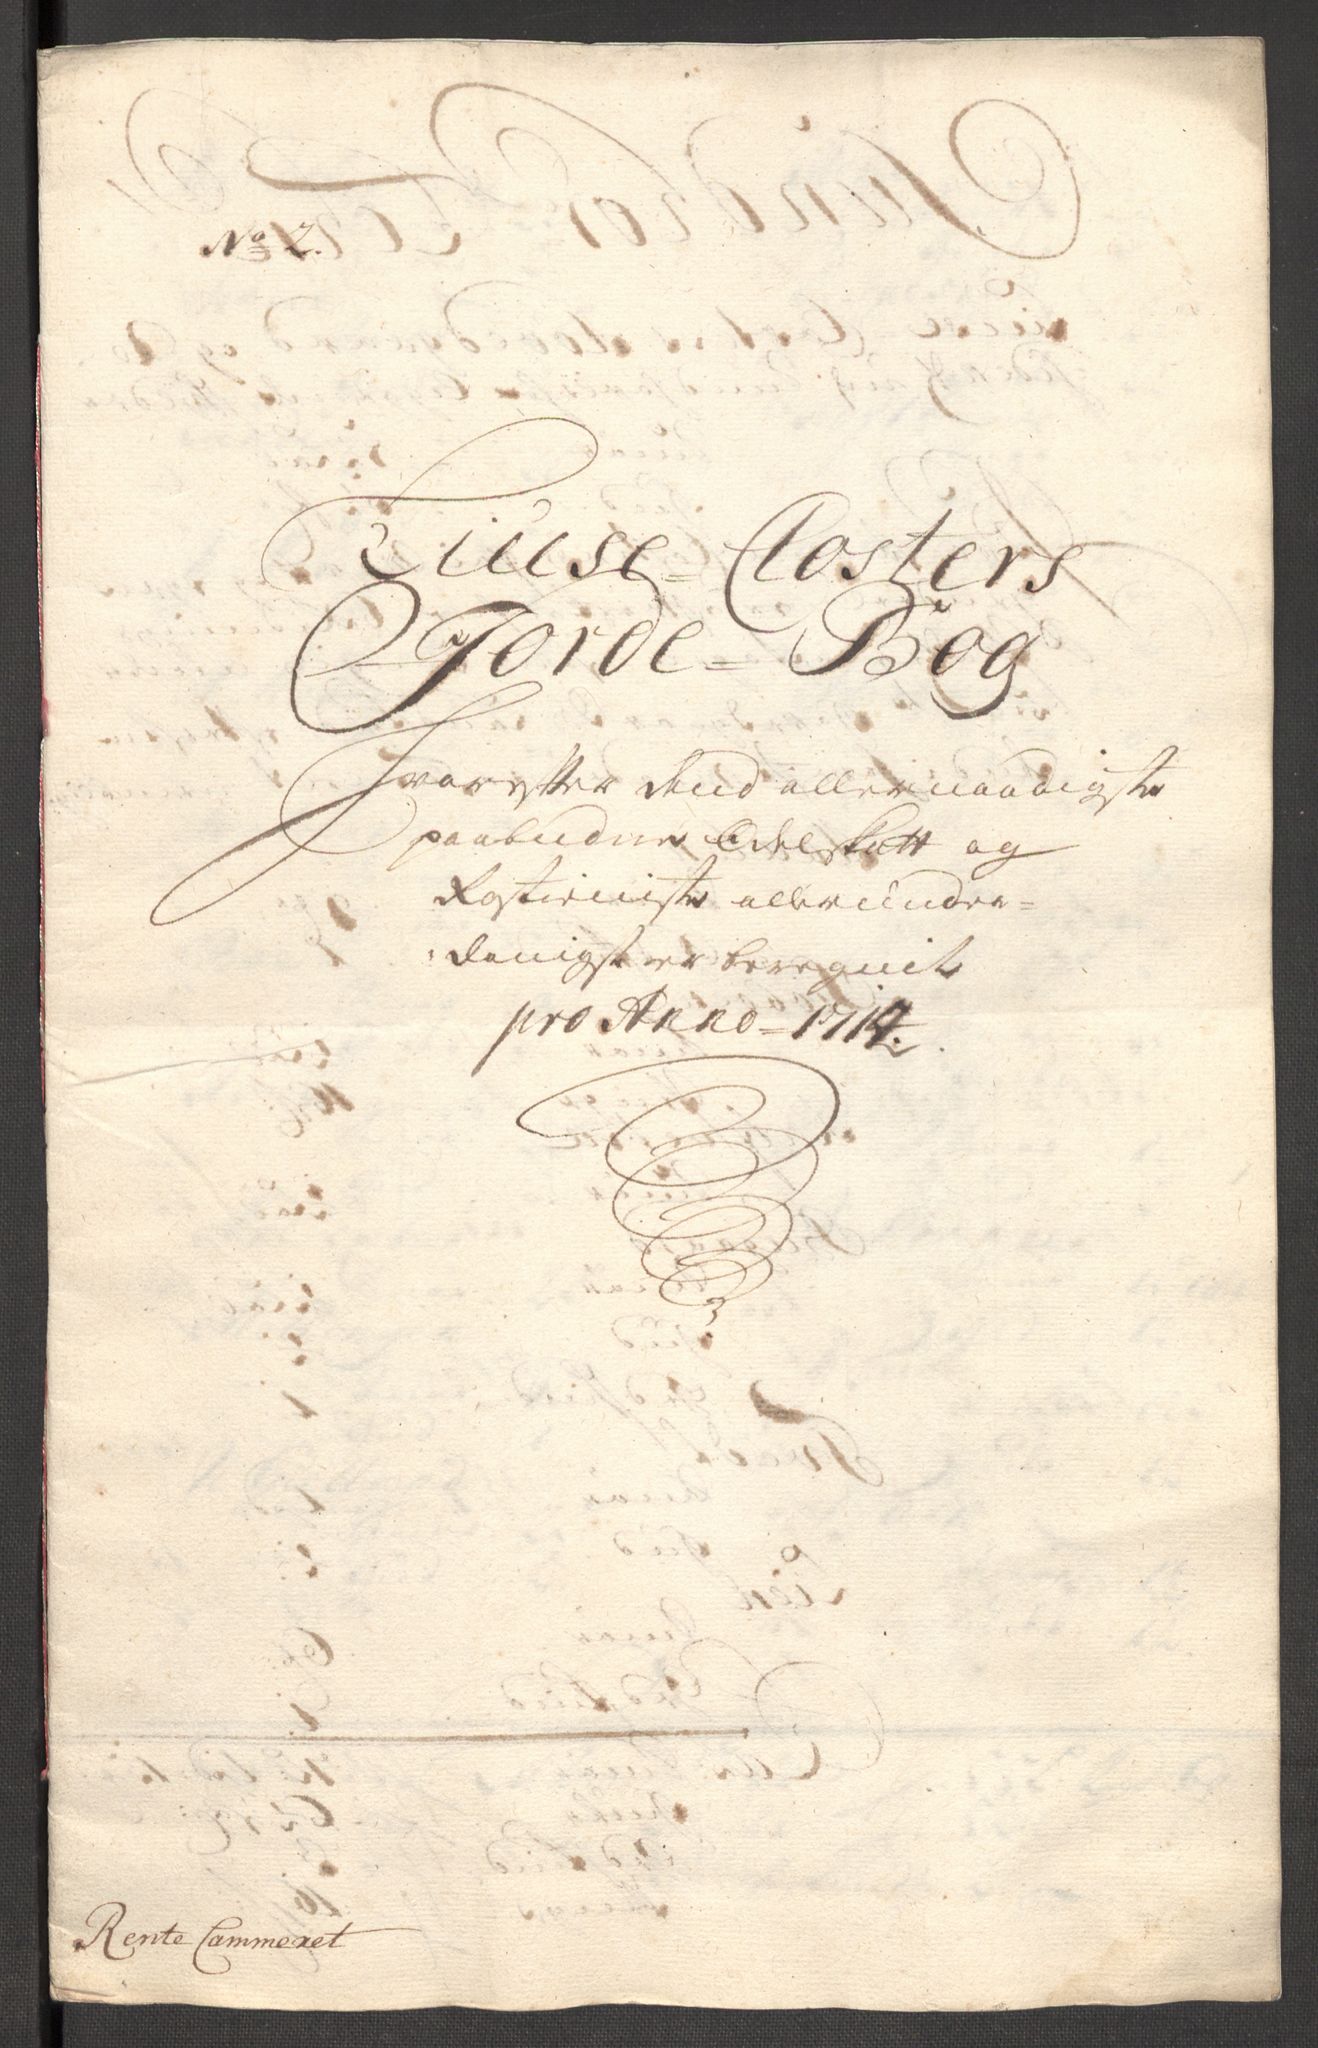 No 2.
Liuse-Closters
Jorde-Bog
Hvorefter dend allernaadigste
paabudne Odelskatt og
Rostieniste allerunder-
danigst er beregnit
pro Anno-1714.
Rente Cammeret